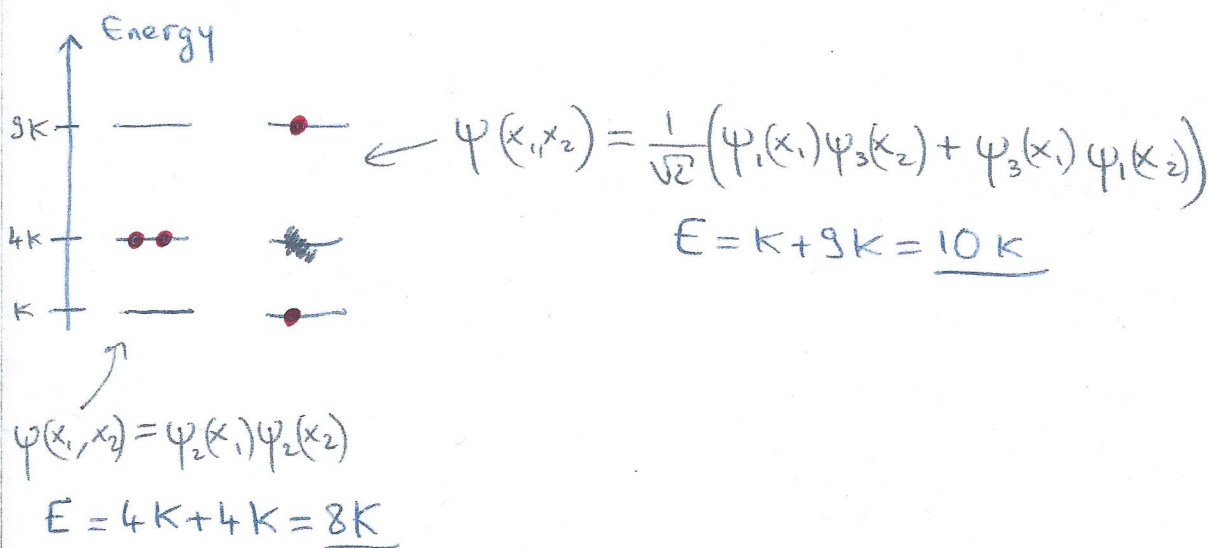 Energy
9K
ψ(x₁,x₂) = 1/√2 (ψ₁(x₁)ψ₃(x₂) + ψ₃(x₁)ψ₁(x₂))
4K
E = K + 9K = 10K
K
ψ(x₁,x₂) = ψ₂(x₁)ψ₂(x₂)
E = 4K + 4K = 8K